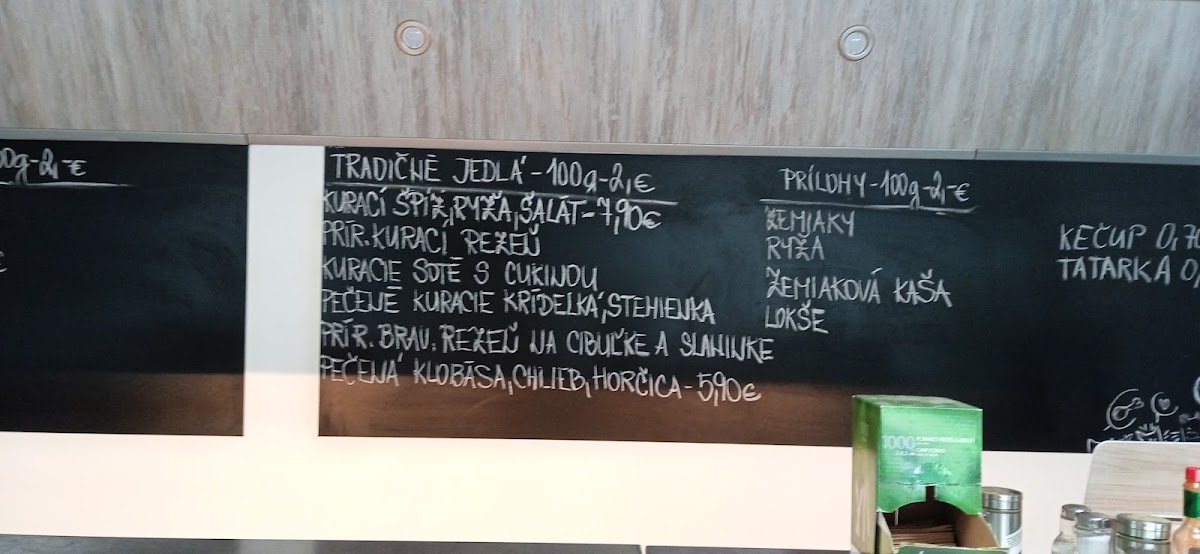 00g-2,-€
€
TRADIČNÉ JEDLÁ - 100g-2,€
KURACÍ ŠPÍZ, RYŽA, ŠALÁT - 7,90€
PRÍR. KURACÍ REZEŇ
KURACIE SOTÉ S CUKINOU
PEČENÉ KURACIE KRÍDELKÁ, STEHIENKA
PRÍR. BRAV. REZEŇ NA CIBUĽKE A SLANINKE
PEČENÁ KLOBÁSA, CHLIEB, HORČICA - 5,90€
PRÍLOHY - 100g-2,-€
ZEMIAKY
RYŽA
ZEMIAKOVÁ KAŠA
LOKŠE
KEČUP 0,70
TATARKA 0,
1000